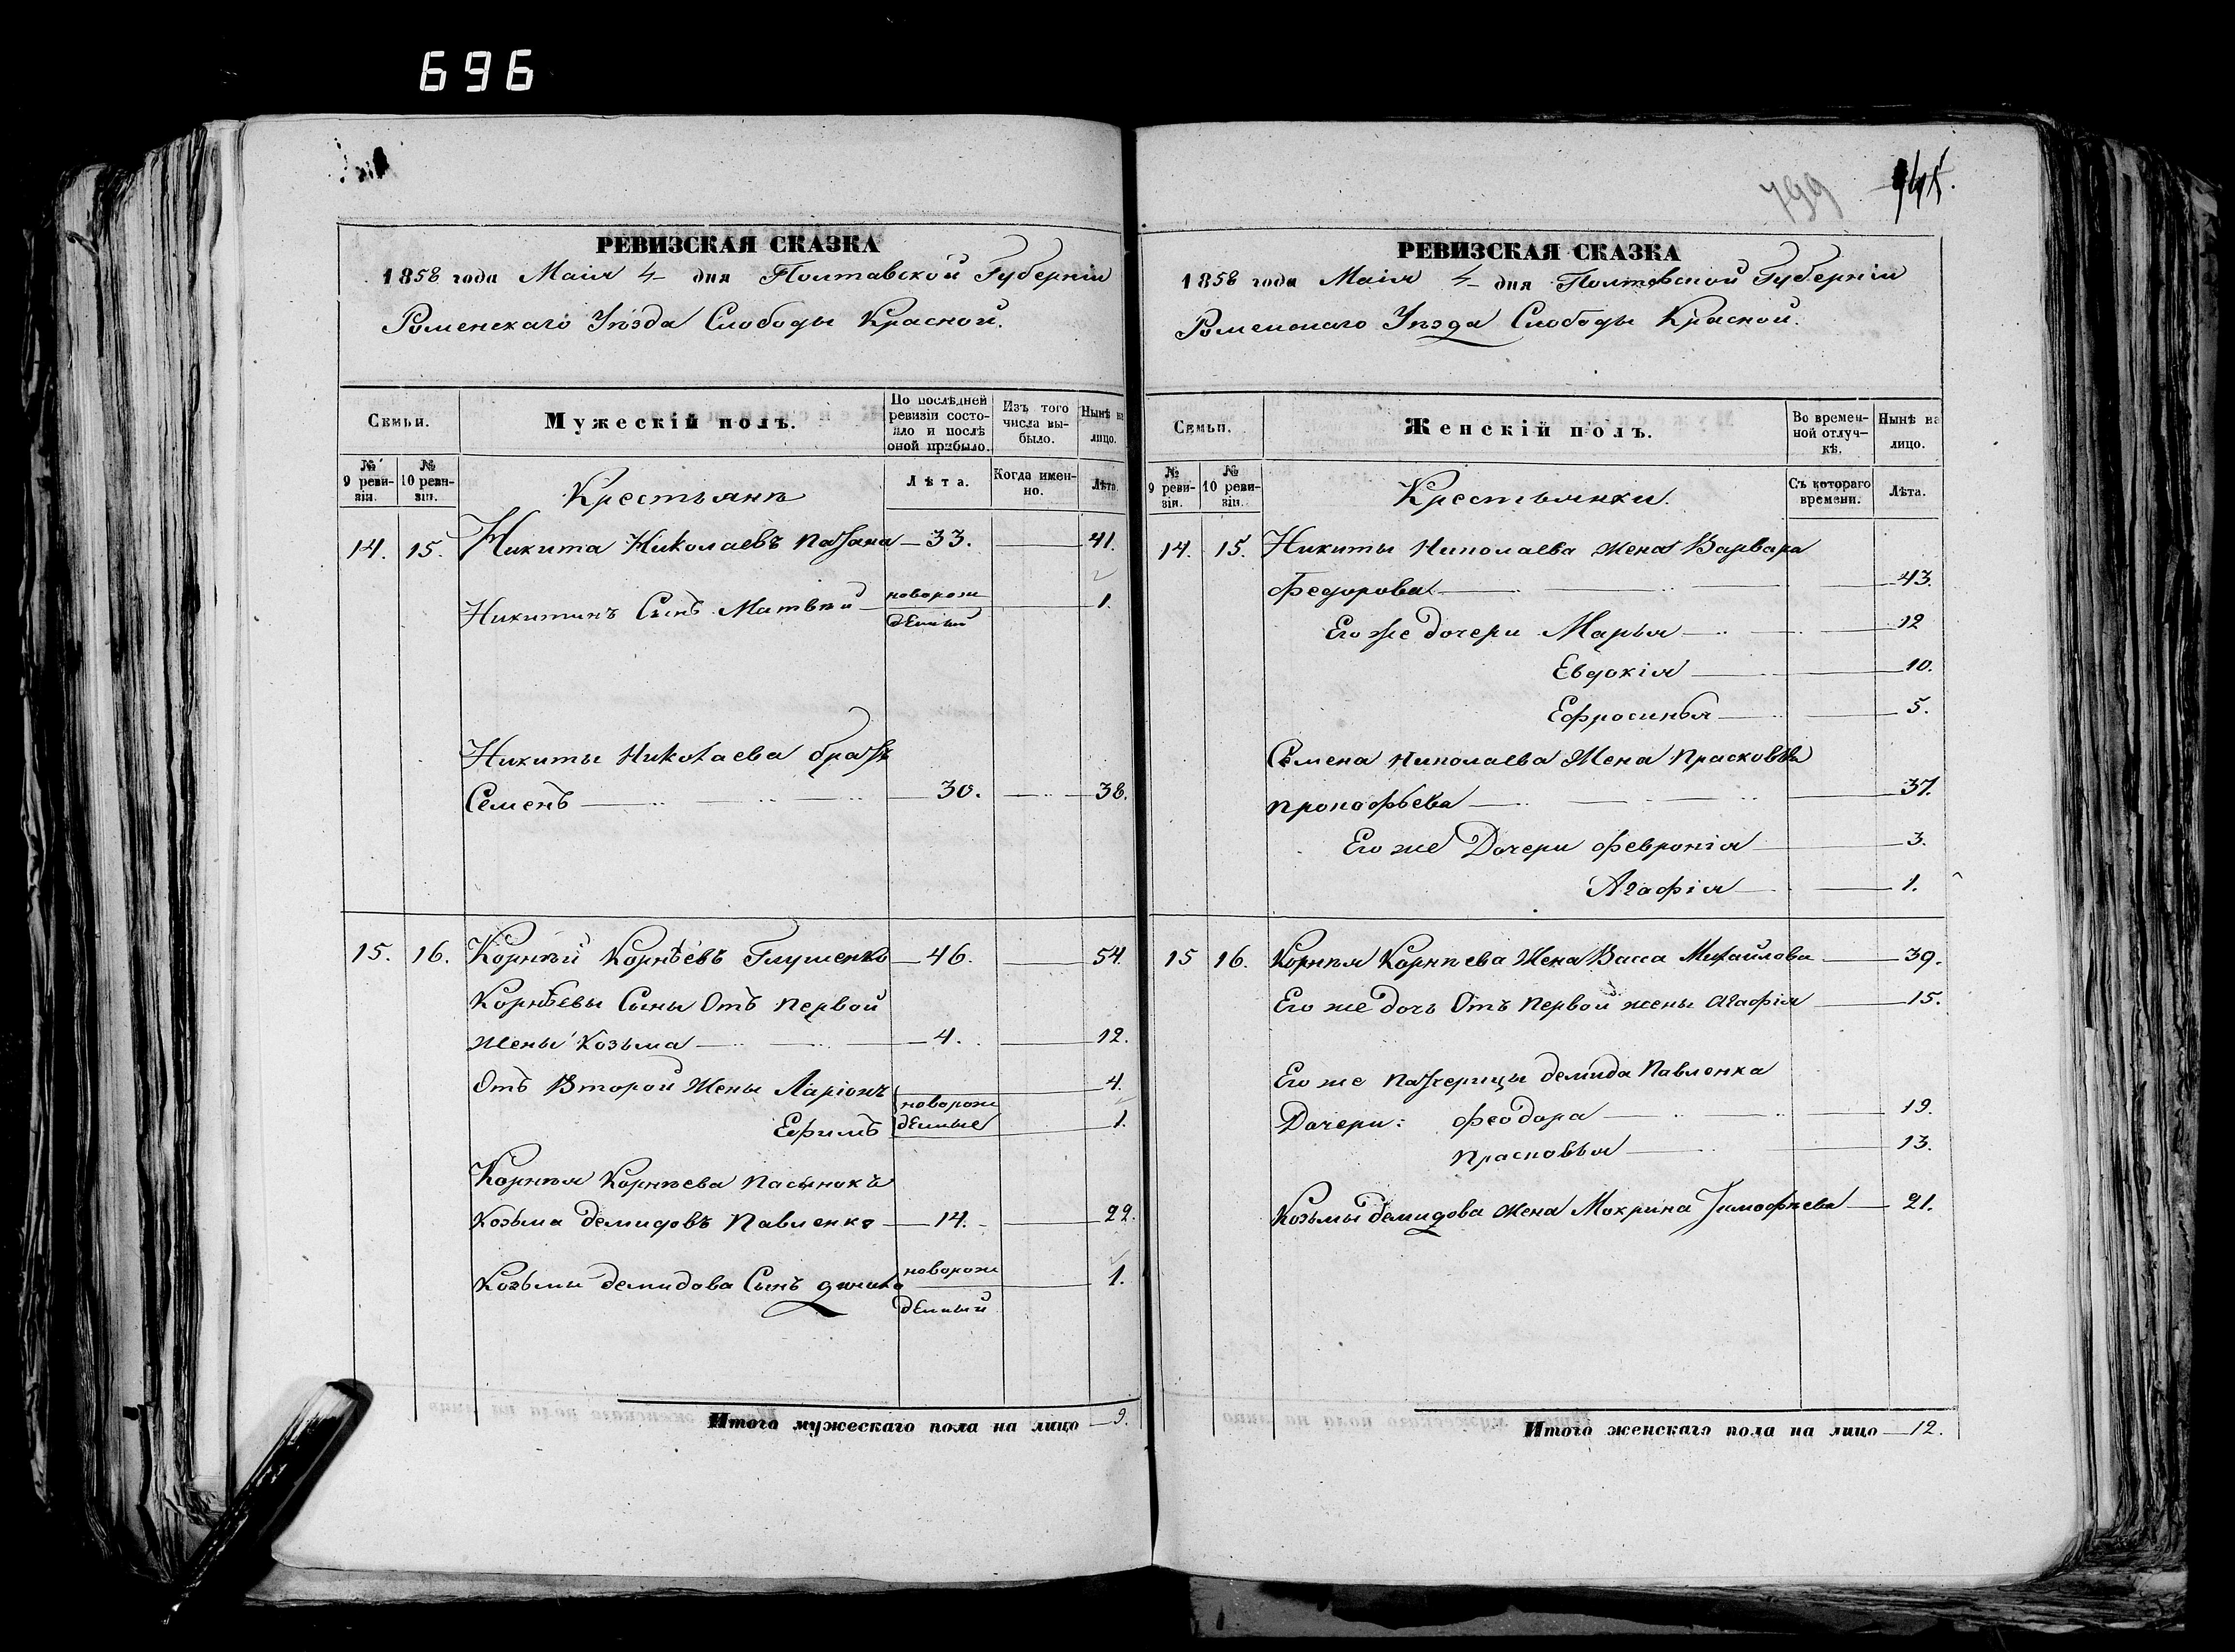 696
РЕВИЗСКАЯ СКАЗКА
1858 года Маія 4 дня Полтавской Губерніи
Роменскаго Уѣзда Слободы Красной.
Семьи.
Мужескій полъ.
По послѣдней ревизіи состояло и послѣ оной прибыло.
Изъ того числа выбыло.
Нынѣ на лицо.
№ 9 ревизіи.
№ 10 ревизіи.
Крестьянѣ
Лѣта.
Когда именно.
Лѣта.
14. 15. Никита Николаевъ — 33. — 41.
Никитинъ Сынъ Матвѣй — новорожденный — 1.
Никиты Николаева братъ
Семенъ — 30. — 38.
15. 16. Корнѣй Корнѣевъ Глущенко — 46. — 54.
Корнѣевы Сыны Отъ Первой
Жены Козьма — 4. — 12.
Отъ Второй Жены Ларіонъ — 4.
новорожденные
Ефимъ — 1.
Корнѣя Корнѣева Пасынокъ
Козьма Демидовъ Павленко — 14. — 22.
Козьмы Демидова Сынъ — новорожденный — 1.
Итого мужескаго пола на лицо — 9.
799
РЕВИЗСКАЯ СКАЗКА
1858 года Маія 4 дня Полтавской Губерніи
Роменскаго Уѣзда Слободы Красной.
Семьи.
Женскій полъ.
Во временной отлучкѣ.
Нынѣ на лицо.
№ 9 ревизіи.
№ 10 ревизіи.
Крестьянки.
Съ котораго времени.
Лѣта.
14. 15. Никиты Николаева жена Варвара
Федорова — 43.
Его же дочери Марья — 12
Евдокія — 10.
Ефросинья — 5.
Семена Николаева Жена Прасковья
Прокофьева — 37.
Его же Дочери Февронія — 3.
Агафія — 1.
15 16. Корнѣя Корнѣева Жена Васса Михайлова — 39.
Его же дочь Отъ Первой жены Агафія — 15.
Его же Падчерицы Демида Павленка
Дочери: Феодора — 19.
Прасковья — 13.
Козьмы Демидова Жена Мокрина Тимофѣева — 21.
Итого женскаго пола на лицо — 12.